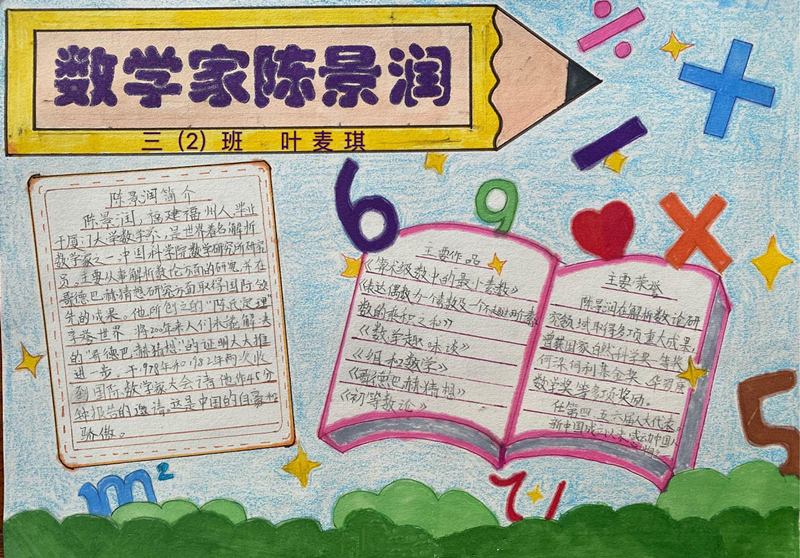 数学家陈景润
三(2)班 叶麦琪
陈景润简介
陈景润,福建福州人,毕业
于厦门大学数学系,是世界著名解析
数学家之一,中国科学院数学研究所研究
员,主要从事解析数论方面的研究,并在
哥德巴赫猜想研究方面取得国际领
先的成果。他所创立的“陈氏定理”
享誉世界,将200年来人们未能解决
的“哥德巴赫猜想”的证明大大推
进一步,于1978年和1982年两次收
到国际数学家大会请他作45分
钟报告的邀请。这是中国的自豪和
骄傲。
主要作品
《算术级数中的最小素数》
《表达偶数为一个素数及一个不超过两个素
数的乘积之和》
《数学趣味谈》
《组和数学》
《哥德巴赫猜想》
《初等数论》
主要荣誉
陈景润在解析数论研
究领域取得多项重大成果,
曾获国家自然科学奖一等奖、
何梁何利基金奖、华罗庚
数学奖等多项奖励。
任第四、五、六届人大代表。
新中国成立以来感动中国人
6
9
m²
5